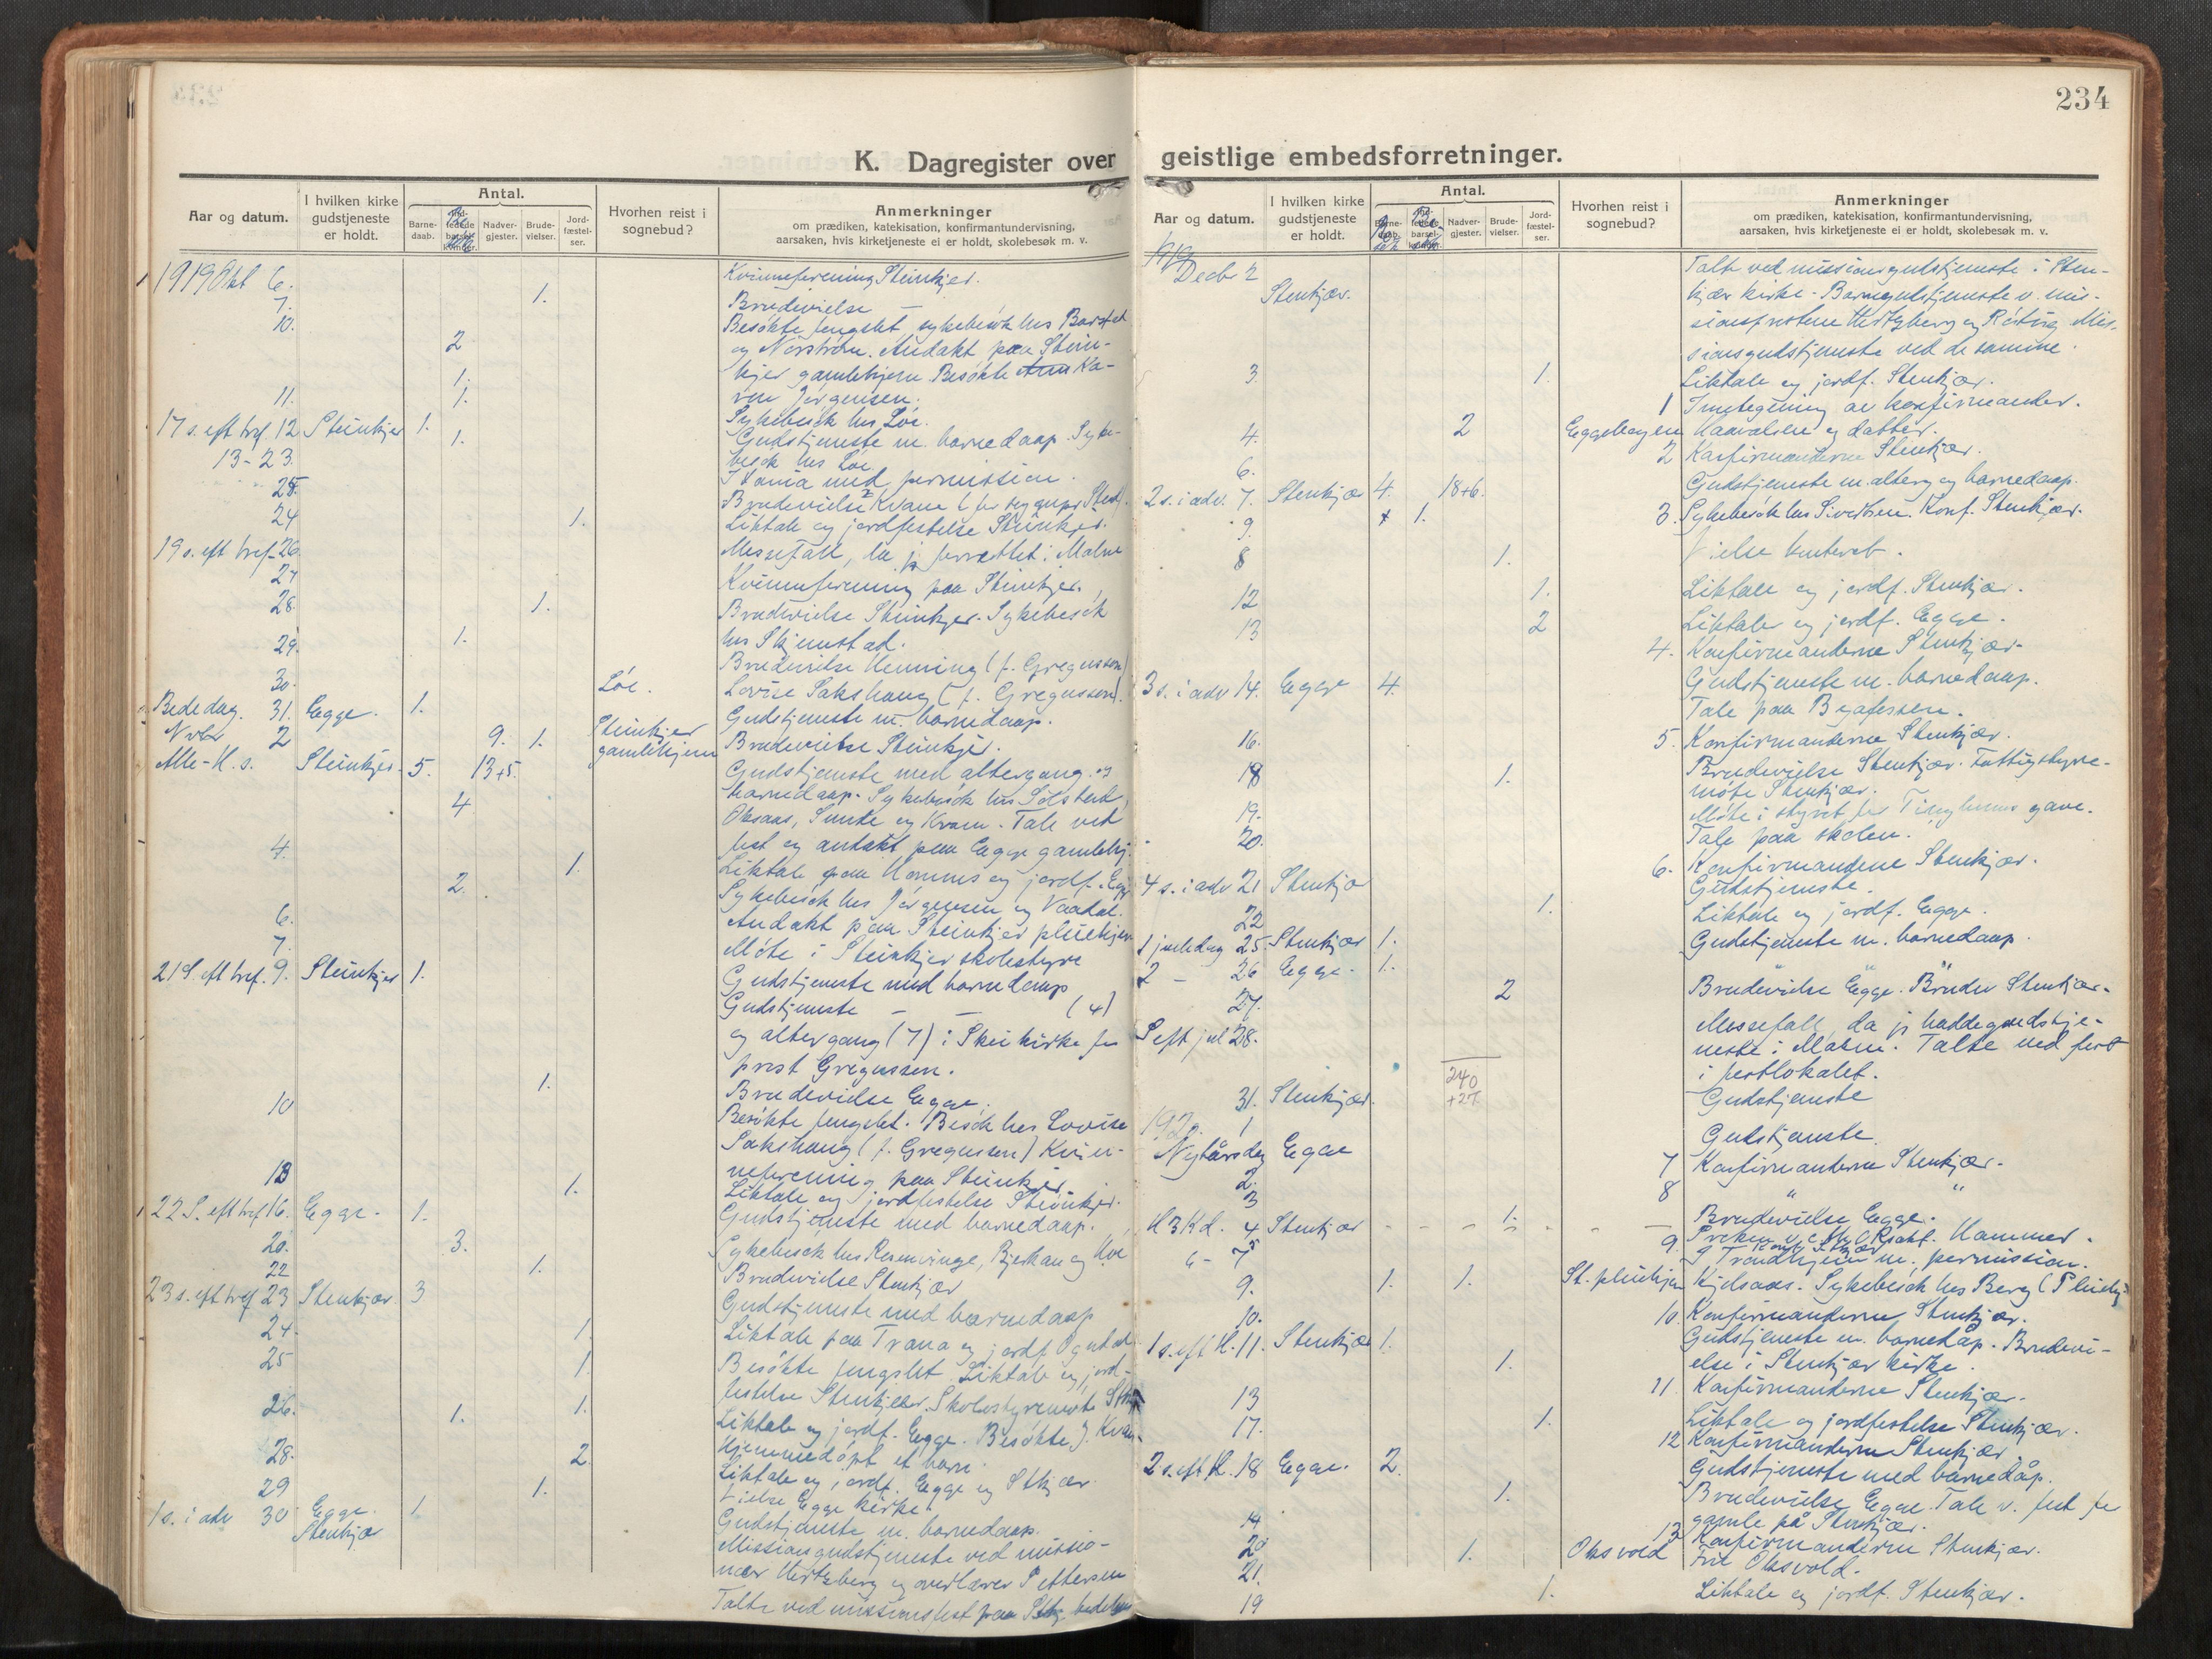 234
K. Dagregister over geistlige embedsforretninger.
Aar og datum.
I hvilken kirke gudstjeneste er holdt.
Antal.
Barne-daab.
Nadver-gjester.
Brude-vielser.
Jord-fæstel-ser.
Hvorhen reist i sognebud?
Anmerkninger
om prædiken, katekisation, konfirmantundervisning,
aarsaken, hvis kirketjeneste ei er holdt, skolebesøk m. v.
1919 Okt 6. Kvinneforening Steinkjer.
7. 1. Brudevielse —
10. Besøkte fengslet, sykebesøk hos
2 og Norstrøm. Andakt paa Stein-
1. kjer gamlehjem Besøkte Ka-
ren Jørgensen.
11. 1. Sykebesøk hos Løe.
17 s. eft tref. 12 Steinkjer 1. Gudstjeneste m. barnedaap. Syke-
1. besøk hos Løe.
13-23. med permission.
25. Brudevielse Kvam
24 1. Liktale og jordfestelse Steinkjer.
19 s. eft tref. 26 Messefall, da jeg forrettet i Malm
27 Kvinneforening paa Steinkjer.
28. 1. Brudevielse Steinkjer. Sykebesøk
1. hos Skjemstad.
29. Brudevielse Henning (f. Gregussen)
30. Løe. Lovise Sakshaug (f. Gregussen).
Bededag. 31. Egge. 1. Gudstjeneste m. barnedaap.
Novbr 2 9. 1. Steinkjer gamlehjem Brudevielse Steinkjer.
Alle-H. s. Steinkjer. 5. 13+5. Gudstjeneste med altergang og
barnedaap. Sykebesøk hos Solstad,
4 Oksaas, Sunde og Kvam. Tale ved
fest og andakt paa Egge gamlehj.
4. 1. Liktale paa Hammer og jordf. Egge
2. Sykebesøk hos Jørgensen og Vaadal.
6. Andakt paa Steinkjer pleiehjem
7. Møte i Steinkjer skolestyre
21 S. eft tref. 9. Steinkjer 1. Gudstjeneste med barnedaap
Gudstjeneste — — (4)
og altergang (7) i Skei kirke for
prest Gregussen.
1. Brudevielse Egge.
10 Besøkte fengslet. Besøk hos Lovise
Sakshaug (f. Gregussen) Kvin-
neforening paa Steinkjer
13 1. Liktale og jordfestelse Steinkjer.
22 S. eft tref 16. Egge. 1. Gudstjeneste med barnedaap.
20. 3. Sykebesøk hos
22 1. Brudevielse Stenkjær
23 s. eft tref 23 Stenkjær. 3 Gudstjeneste med barnedaap
24. 1. Liktale paa Trana og jordf
25 1 Besøkte fengslet Liktale og jord-
festelse Stenkjær. Skolestyremøte
26. 1. 1. Liktale og jordf. Egge. Besøkte J. Kvam
Hjemmedøpt et barn.
28. 2. Liktale og jordf. Egge og Stkjær.
29 1. Vielse Egge kirke
1 s. i adv 30 Egge. 1 Gudstjeneste m. barnedaap.
Stenkjær Missionsgudstjeneste ved missio-
nær Hertzberg og overlærer Pettersen
Talte ved missionsfest paa Stkj. bedehus
Aar og datum.
I hvilken kirke gudstjeneste er holdt.
Antal.
Nadver-gjester.
Brude-vielser.
Jord-fæstel-ser.
Hvorhen reist i sognebud?
Anmerkninger
om prædiken, katekisation, konfirmantundervisning,
aarsaken, hvis kirketjeneste ei er holdt, skolebesøk m. v.
1919 Decbr 2 Stenkjær. Talte ved missionsgudstjeneste i Sten-
kjær kirke. Barnegudstjeneste v. mis-
sionsprestene Hertzberg og Mis-
sionsgudstjeneste ved de samme.
3. 1. Liktale og jordf. Stenkjær.
1 av konfirmander.
4. 2 Eggebogen og datter.
6. 2 Konfirmanderne Stenkjær.
2 s. i adv. 7. Stenkjær 4. 18+6. Gudstjeneste m. alterg. og barnedaap.
9. 1. 3. Sykebesøk hos Sivertsen. Konf. Stenkjær.
8 1. Vielse kontoret.
12 1. Liktale og jordf. Stenkjær.
13 2 Liktale og jordf. Egge.
4. Konfirmanderne Stenkjær.
3 s. i adv 14. Egge 4. Gudstjeneste m. barnedaap.
Tale paa Byafossen.
16. 5. Konfirmanderne Stenkjær.
18 1. Brudevielse Stenkjær. Fattigstyre-
møte Stenkjær.
19. Møte i styret for Tinghaugs gave.
20. Tale paa skolen.
6. Konfirmandene Stenkjær.
4 s. i adv 21 Stenkjær Gudstjeneste.
22 1. Liktale og jordf. Egge.
1 juledag 25. Stenkjær 1. Gudstjeneste m. barnedaap.
2 — 26 Egge. 1. " " "
27. 2 Brudevielse Egge. Brudev Stenkjær.
S eft jul 28. Messefall, da jeg hadde gudstje-
neste i Malm. Talte ved fest
i festlokalet.
240
+27
31. Stenkjær. Gudstjeneste
1920. 1 Nytårsdag Egge Gudstjeneste.
2. 7 Konfirmanderne Stenkjær.
3 8 " "
1. Brudevielse Egge.
H 3 K d. 4 Stenkjær Hammer.
9.
6 - 7 Trondhjem m. permission.
9. 1. 1. St. pleiehjem Kjelsaas. Sykebesøk hos Berg
10. 10. Konfirmanderne Stenkjær.
1 s. eft H. 11. Stenkjær 1. Gudstjeneste m. barnedåp. Brudevi-
1. else i Stenkjær kirke.
13 11. Konfirmanderne Stenkjær.
17. 1. Liktale og jordfestelse Stenkjær.
12 Konfirmanderne Stenkjær.
2 s. eft H. 18 Egge. 2. Gudstjeneste med barnedåp.
1. Brudevielse Egge. Tale v. fest for
19 gamle på Stenkjær.
20 13 Konfirmanderne Stenkjær.
21. 1. Oksvold Fru Oksvold.
19 1. Liktale og jordf. Stenkjær.